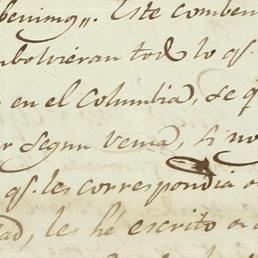 benimos". Este combeni
mbolviéran todo lo qs.
en el Columbia, se q
r segun venia, si no
qs. les correspondia
dad, les hé escrito